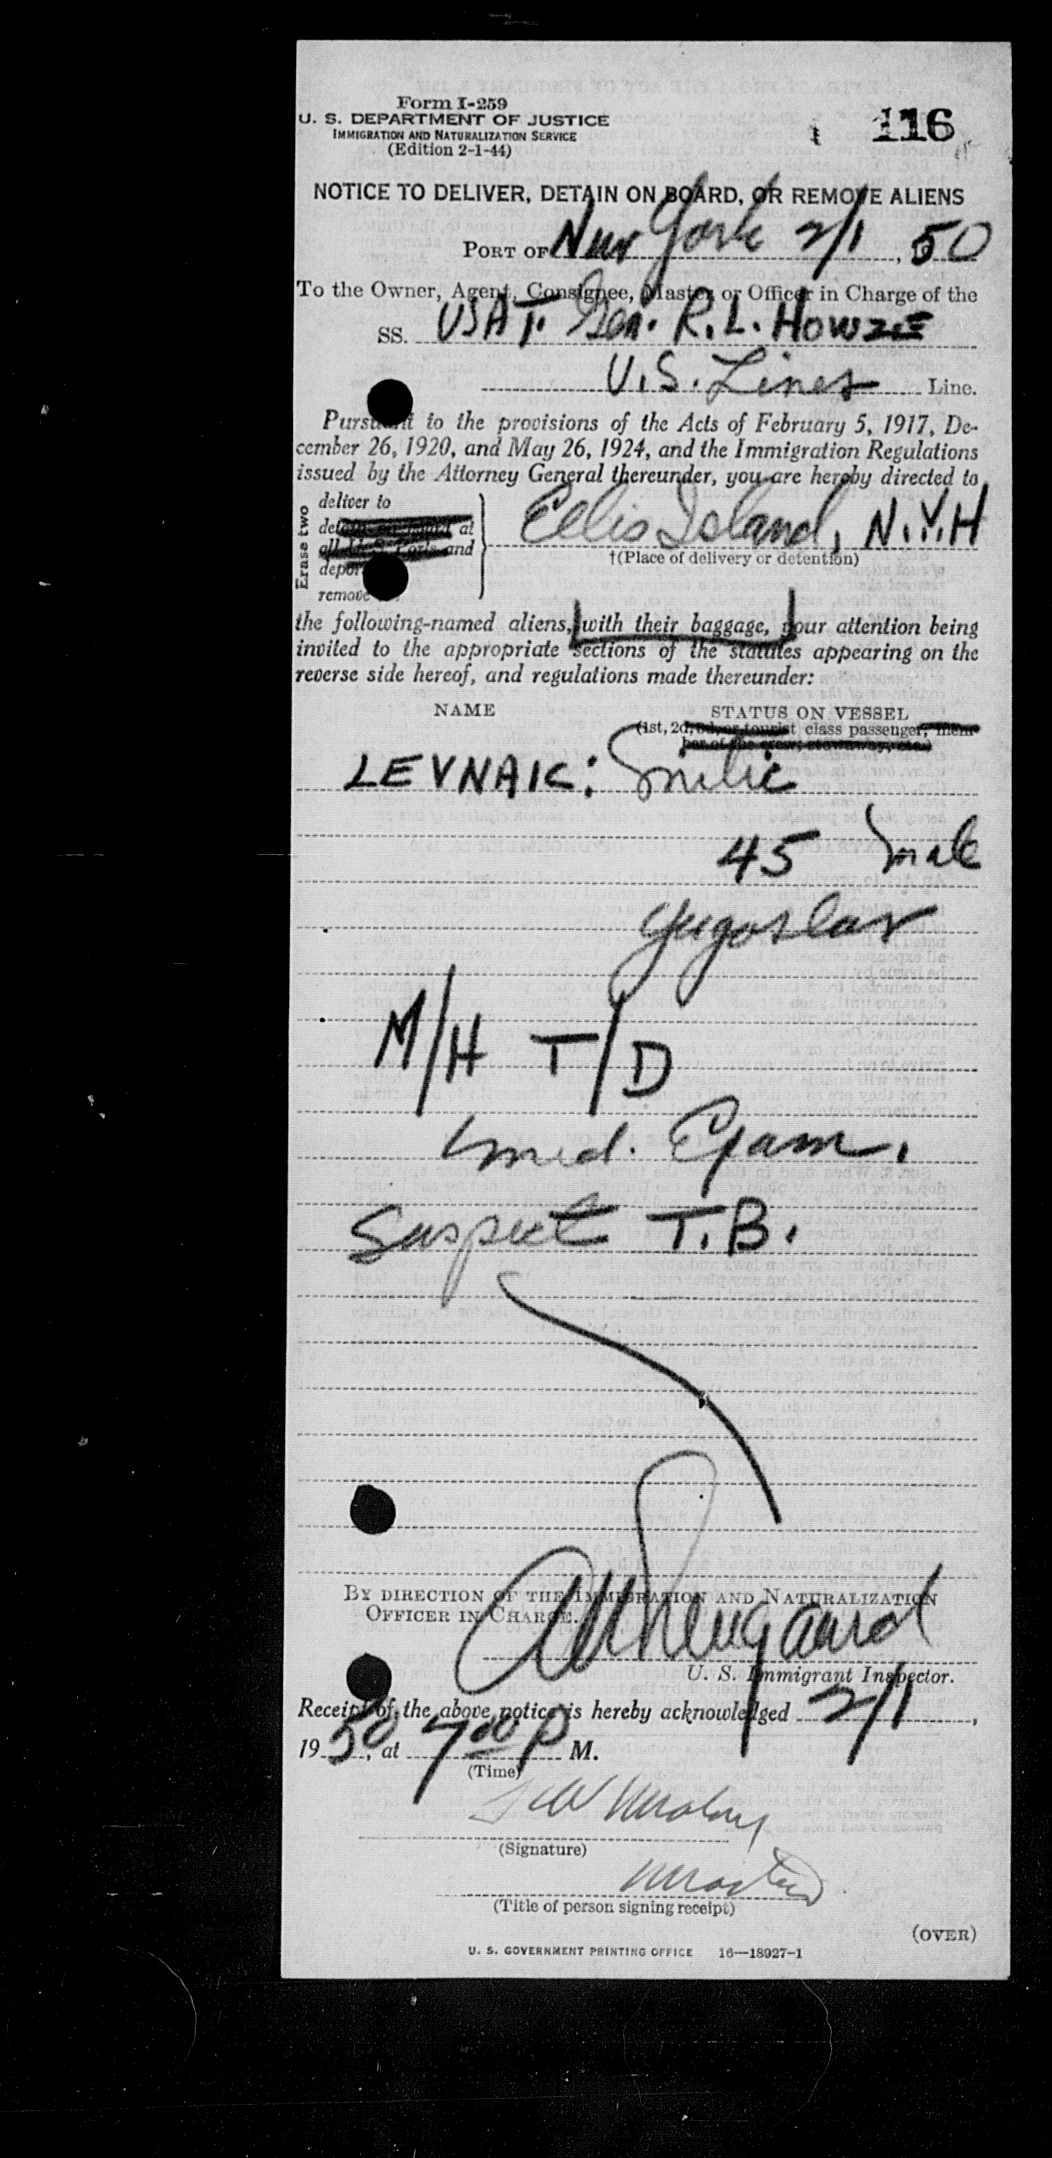 Form I-259
U. S. DEPARTMENT OF JUSTICE
IMMIGRATION AND NATURALIZATION SERVICE
(Edition 2-1-44)
116
NOTICE TO DELIVER, DETAIN ON BOARD, OR REMOVE ALIENS
PORT OF New York 2/1, 1950
To the Owner, Agent, Consignee, Master or Officer in Charge of the
SS. USAT. Gen. R.L. Howze
U.S. Lines Line.
Pursuant to the provisions of the Acts of February 5, 1917, De-
cember 26, 1920, and May 26, 1924, and the Immigration Regulations
issued by the Attorney General thereunder, you are hereby directed to
Erase two
deliver to
detain on board at
all U. S. Ports and
deport
remove
Ellis Island, N.Y.H
†(Place of delivery or detention)
the following-named aliens, with their baggage, your attention being
invited to the appropriate sections of the statutes appearing on the
reverse side hereof, and regulations made thereunder:
NAME STATUS ON VESSEL
(1st, 2d, 3d, or tourist class passenger, mem-
ber of the crew, stowaway, etc.)
LEVNAIC: Smilic
45 Male
Yugoslav
M/H T/D
Med. Exam.
Suspect T.B.
BY DIRECTION OF THE IMMIGRATION AND NATURALIZATION
OFFICER IN CHARGE.
U. S. Immigrant Inspector.
Receipt of the above notice is hereby acknowledged 2/1,
1950, at 7 00 P M.
(Time)
(Signature)
Master
(Title of person signing receipt)
(OVER)
U. S. GOVERNMENT PRINTING OFFICE 16—18927-1